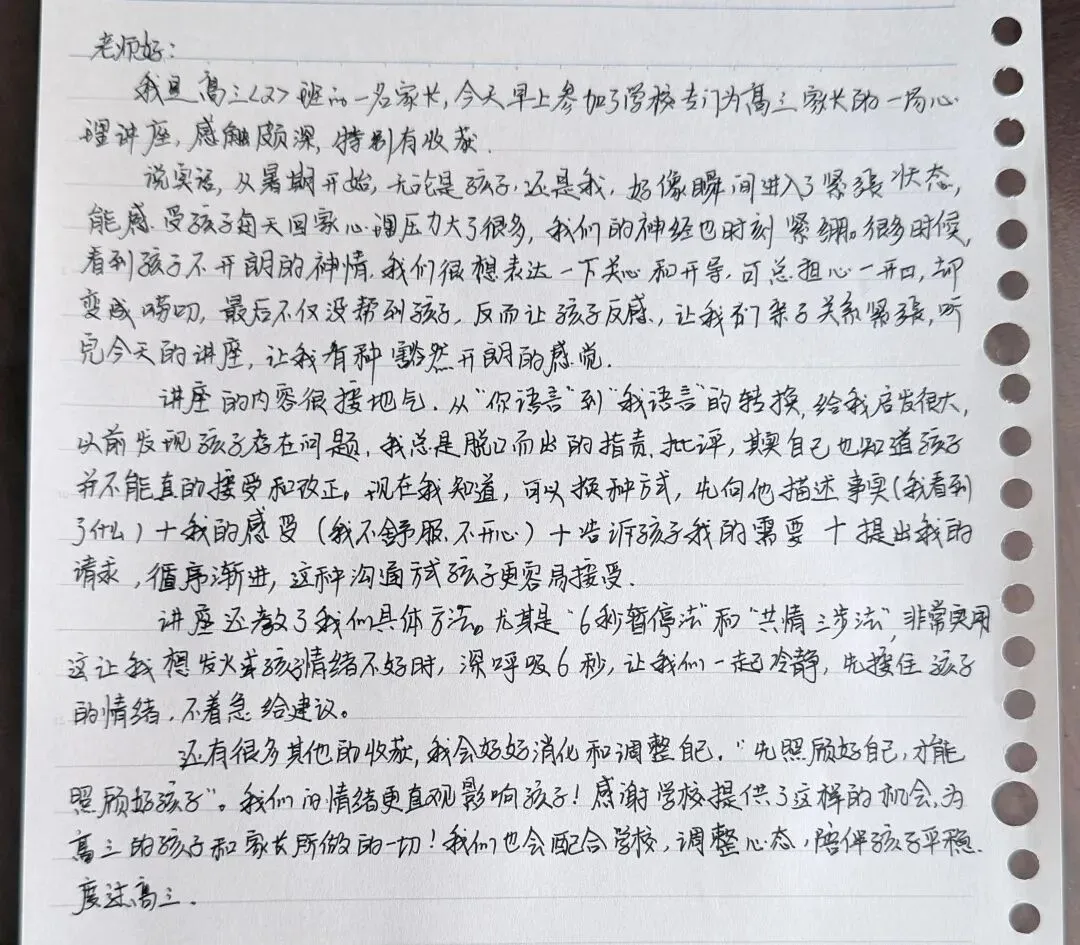 老师好：
我是高三<2>班的一名家长，今天早上参加了学校专门为高三家长的一场心
理讲座，感触颇深，特别有收获.
说实话，从暑期开始，无论是孩子，还是我，好像瞬间进入了紧张状态，
能感受孩子每天回家心理压力大了很多，我们的神经也时刻紧绷。很多时候，
看到孩子不开朗的神情，我们很想表达一下关心和开导，可总担心一开口，却
变成唠叨，最后不仅没帮到孩子，反而让孩子反感，让我们亲子关系紧张，听
完今天的讲座，让我有种豁然开朗的感觉.
讲座的内容很接地气，从“你语言”到“我语言”的转换，给我启发很大，
以前发现孩子存在问题，我总是脱口而出的指责、批评，其实自己也知道孩子
并不能真的接受和改正。现在我知道，可以换种方式，先向他描述事实（我看到
了什么）+我的感受（我不舒服、不开心）+告诉孩子我的需要+提出我的
请求，循序渐进，这种沟通方式孩子更容易接受.
讲座还教了我们具体方法。尤其是“6秒暂停法”和“共情三步法”，非常实用
这让我想发火或孩子情绪不好时，深呼吸6秒，让我们一起冷静，先接住孩子
的情绪，不着急给建议。
还有很多其他的收获，我会好好消化和调整自己，“先照顾好自己，才能
照顾好孩子”。我们的情绪更直观影响孩子！感谢学校提供了这样的机会，为
高三的孩子和家长所做的一切！我们也会配合学校，调整心态，陪伴孩子平稳
度过高三.